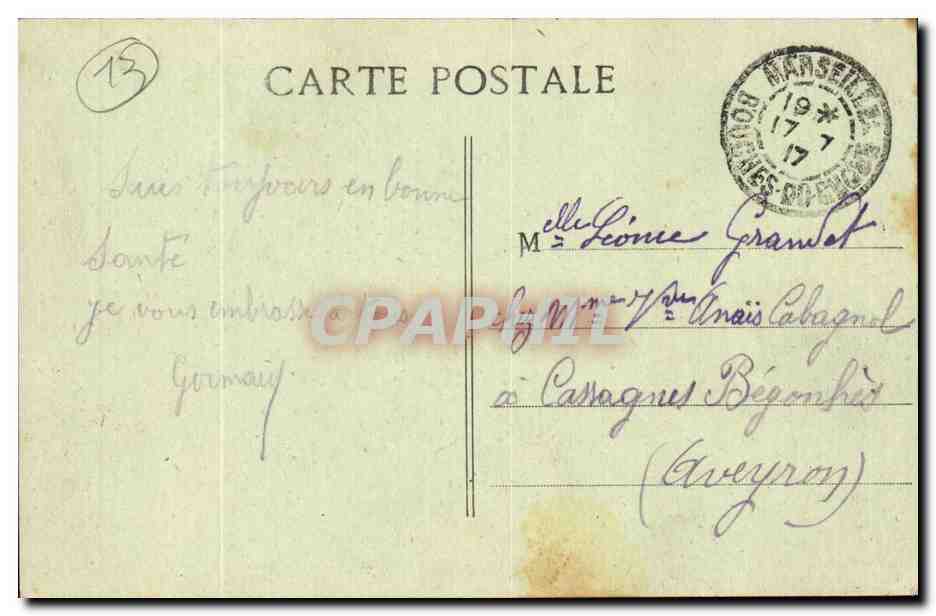 13
CARTE POSTALE
MARSEILLE
19 *
17 - 7
17
BOUCHES-DU-RHONE
Suis Toujours en bonne
Santé
je vous embrasse à
Germain
Melle Léonie Grandet
chez Mme Vve Anaïs Cabagnol
à Cassagnes Bégonhès
(Aveyron)
CPAPHIL